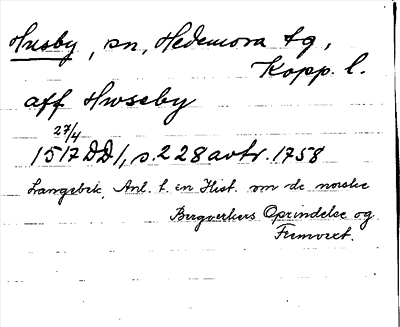 Husby, sn, Hedemora tg,
Kopp. l.
aff Hwseby
27/4
1517 DD1, s. 228 avtr. 1758
Langebek, Anl. t. en Hist. om de norske
Bergverkers Oprindelse og
Fremvext.